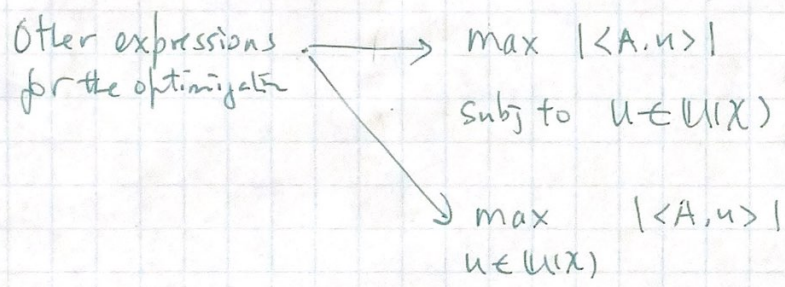 Other expressions
for the optimization
max |<A,u>|
subj to u ∈ U(X)
max |<A,u>|
u ∈ U(X)